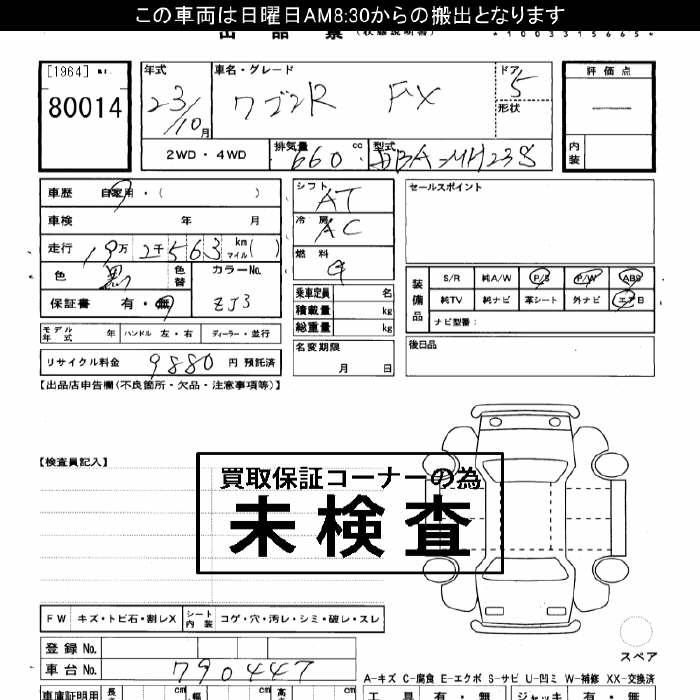 この車両は日曜日AM8:30からの搬出となります
出品票 (状態説明書) *1003315665*
[1964]
80014
年式 車名・グレード ドア 評価点
23/10月 ワゴンR FX 5
形状
2WD・4WD 排気量 660 cc 型式 DBA-MH23S 内装
車歴 自家用・( )
シフト AT
セールスポイント
車検 年 月
冷房 AC
走行 19万2千563 km マイル ( )
燃料 G
色 黒 色替 カラーNo. ZJ3
保証書 有・無
乗車定員 名
積載量 kg
総重量 kg
装備品 S/R 純A/W P/S P/W ABS
純TV 純ナビ 革シート 外ナビ エアB
ナビ型番:
モデル年式 年 ハンドル 左・右 ディーラー・並行
名変期限 月 日
後日品
リサイクル料金 9880 円 預託済
【出品店申告欄(不良箇所・欠品・注意事項等)】
【検査員記入】
買取保証コーナーの為
未検査
FW キズ・トビ石・割レX シート内装 コゲ・穴・汚レ・シミ・破レ・スレ
スペア
登録No.
車台No. 790447
A-キズ C-腐食 E-エクボ S-サビ U-凹ミ W-補修 XX-交換済
車庫証明用 長 cm 幅 cm 高 cm
工具 有・無 ジャッキ 有・無